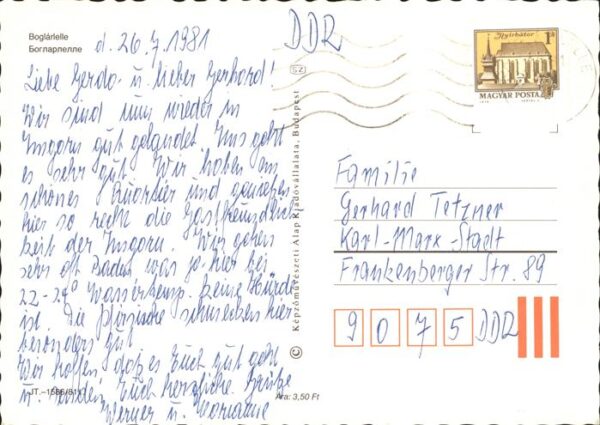 Boglárlelle
Богларлелле
d. 26.7.1981
DDR
Liebe Gerda u. lieber Gerhard!
Wir sind nun wieder in
Ungarn gut gelandet. Uns geht
es sehr gut. Wir haben ein
schönes Quartier und genießen
hier so recht die Gastfreundlich
keit der Ungarn. Wir gehen
sehr oft baden was ja hier bei
22-24° Wassertemp. keine Hürde
ist. Die Pfirsiche schmecken hier
besonders gut.
Wir hoffen daß es Euch gut geht
u. senden Euch herzliche Grüße
Werner u. Marianne
SZ
Képzőművészeti Alap Kiadóvállalata, Budapest
JT.-1586/811
Ára: 3,50 Ft
Nyírbátor
1 Ft
MAGYAR POSTA
Familie
Gerhard Tetzner
Karl-Marx-Stadt
Frankenberger Str. 89
9075 DDR